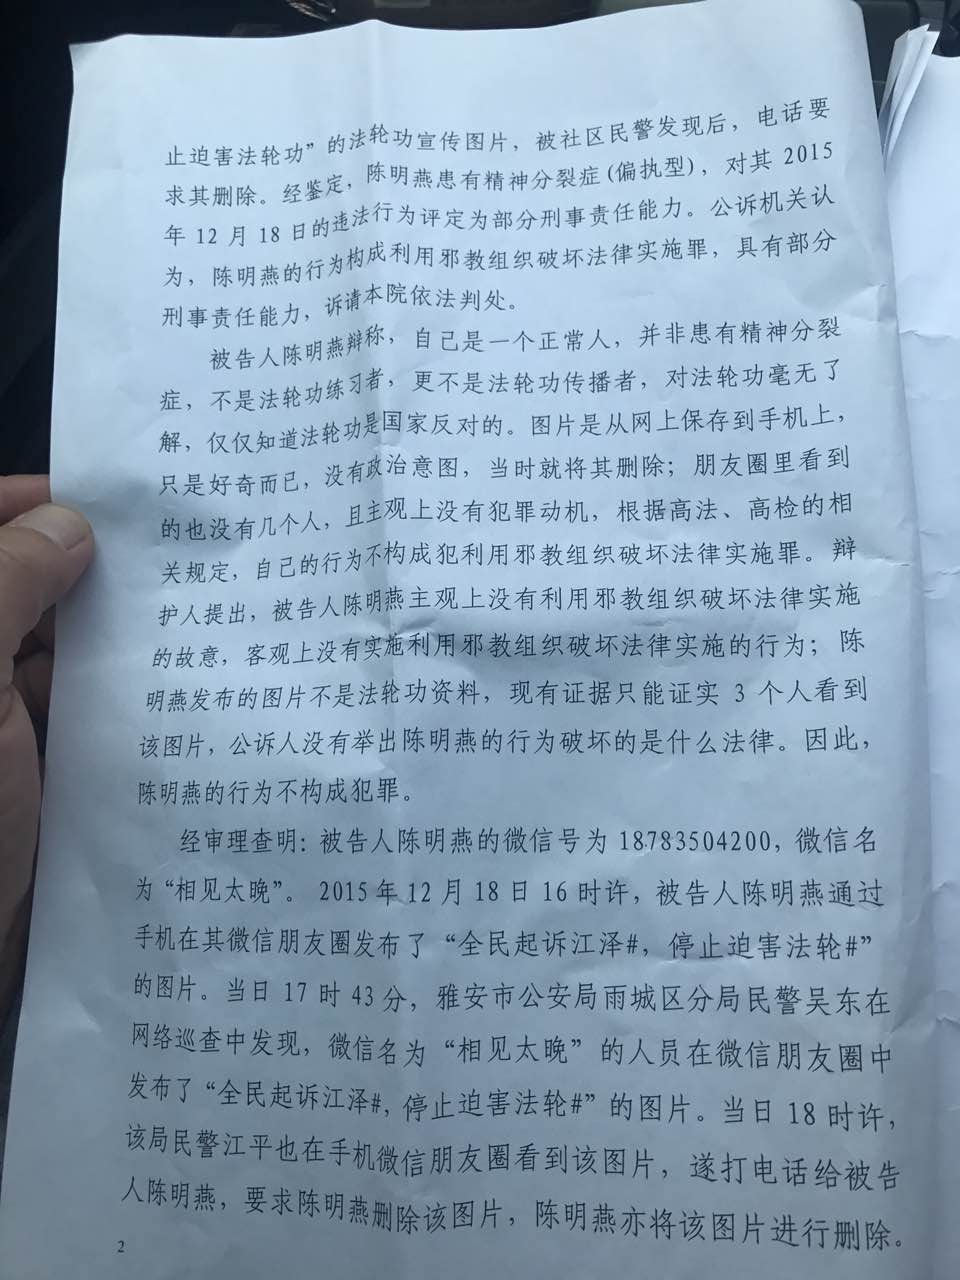 止迫害法轮功”的法轮功宣传图片，被社区民警发现后，电话要
求其删除。经鉴定，陈明燕患有精神分裂症(偏执型)，对其 2015
年 12 月 18 日的违法行为评定为部分刑事责任能力。公诉机关认
为，陈明燕的行为构成利用邪教组织破坏法律实施罪，具有部分
刑事责任能力，诉请本院依法判处。
被告人陈明燕辩称，自己是一个正常人，并非患有精神分裂
症，不是法轮功练习者，更不是法轮功传播者，对法轮功毫无了
解，仅仅知道法轮功是国家反对的。图片是从网上保存到手机上，
只是好奇而已，没有政治意图，当时就将其删除；朋友圈里看到
的也没有几个人，且主观上没有犯罪动机，根据高法、高检的相
关规定，自己的行为不构成犯利用邪教组织破坏法律实施罪。辩
护人提出，被告人陈明燕主观上没有利用邪教组织破坏法律实施
的故意，客观上没有实施利用邪教组织破坏法律实施的行为；陈
明燕发布的图片不是法轮功资料，现有证据只能证实 3 个人看到
该图片，公诉人没有举出陈明燕的行为破坏的是什么法律。因此，
陈明燕的行为不构成犯罪。
经审理查明：被告人陈明燕的微信号为 18783504200，微信名
为“相见太晚”。 2015 年 12 月 18 日 16 时许，被告人陈明燕通过
手机在其微信朋友圈发布了“全民起诉江泽#，停止迫害法轮#”
的图片。当日 17 时 43 分，雅安市公安局雨城区分局民警吴东在
网络巡查中发现，微信名为“相见太晚”的人员在微信朋友圈中
发布了“全民起诉江泽#，停止迫害法轮#”的图片。当日 18 时许，
该局民警江平也在手机微信朋友圈看到该图片，遂打电话给被告
人陈明燕，要求陈明燕删除该图片，陈明燕亦将该图片进行删除。
2